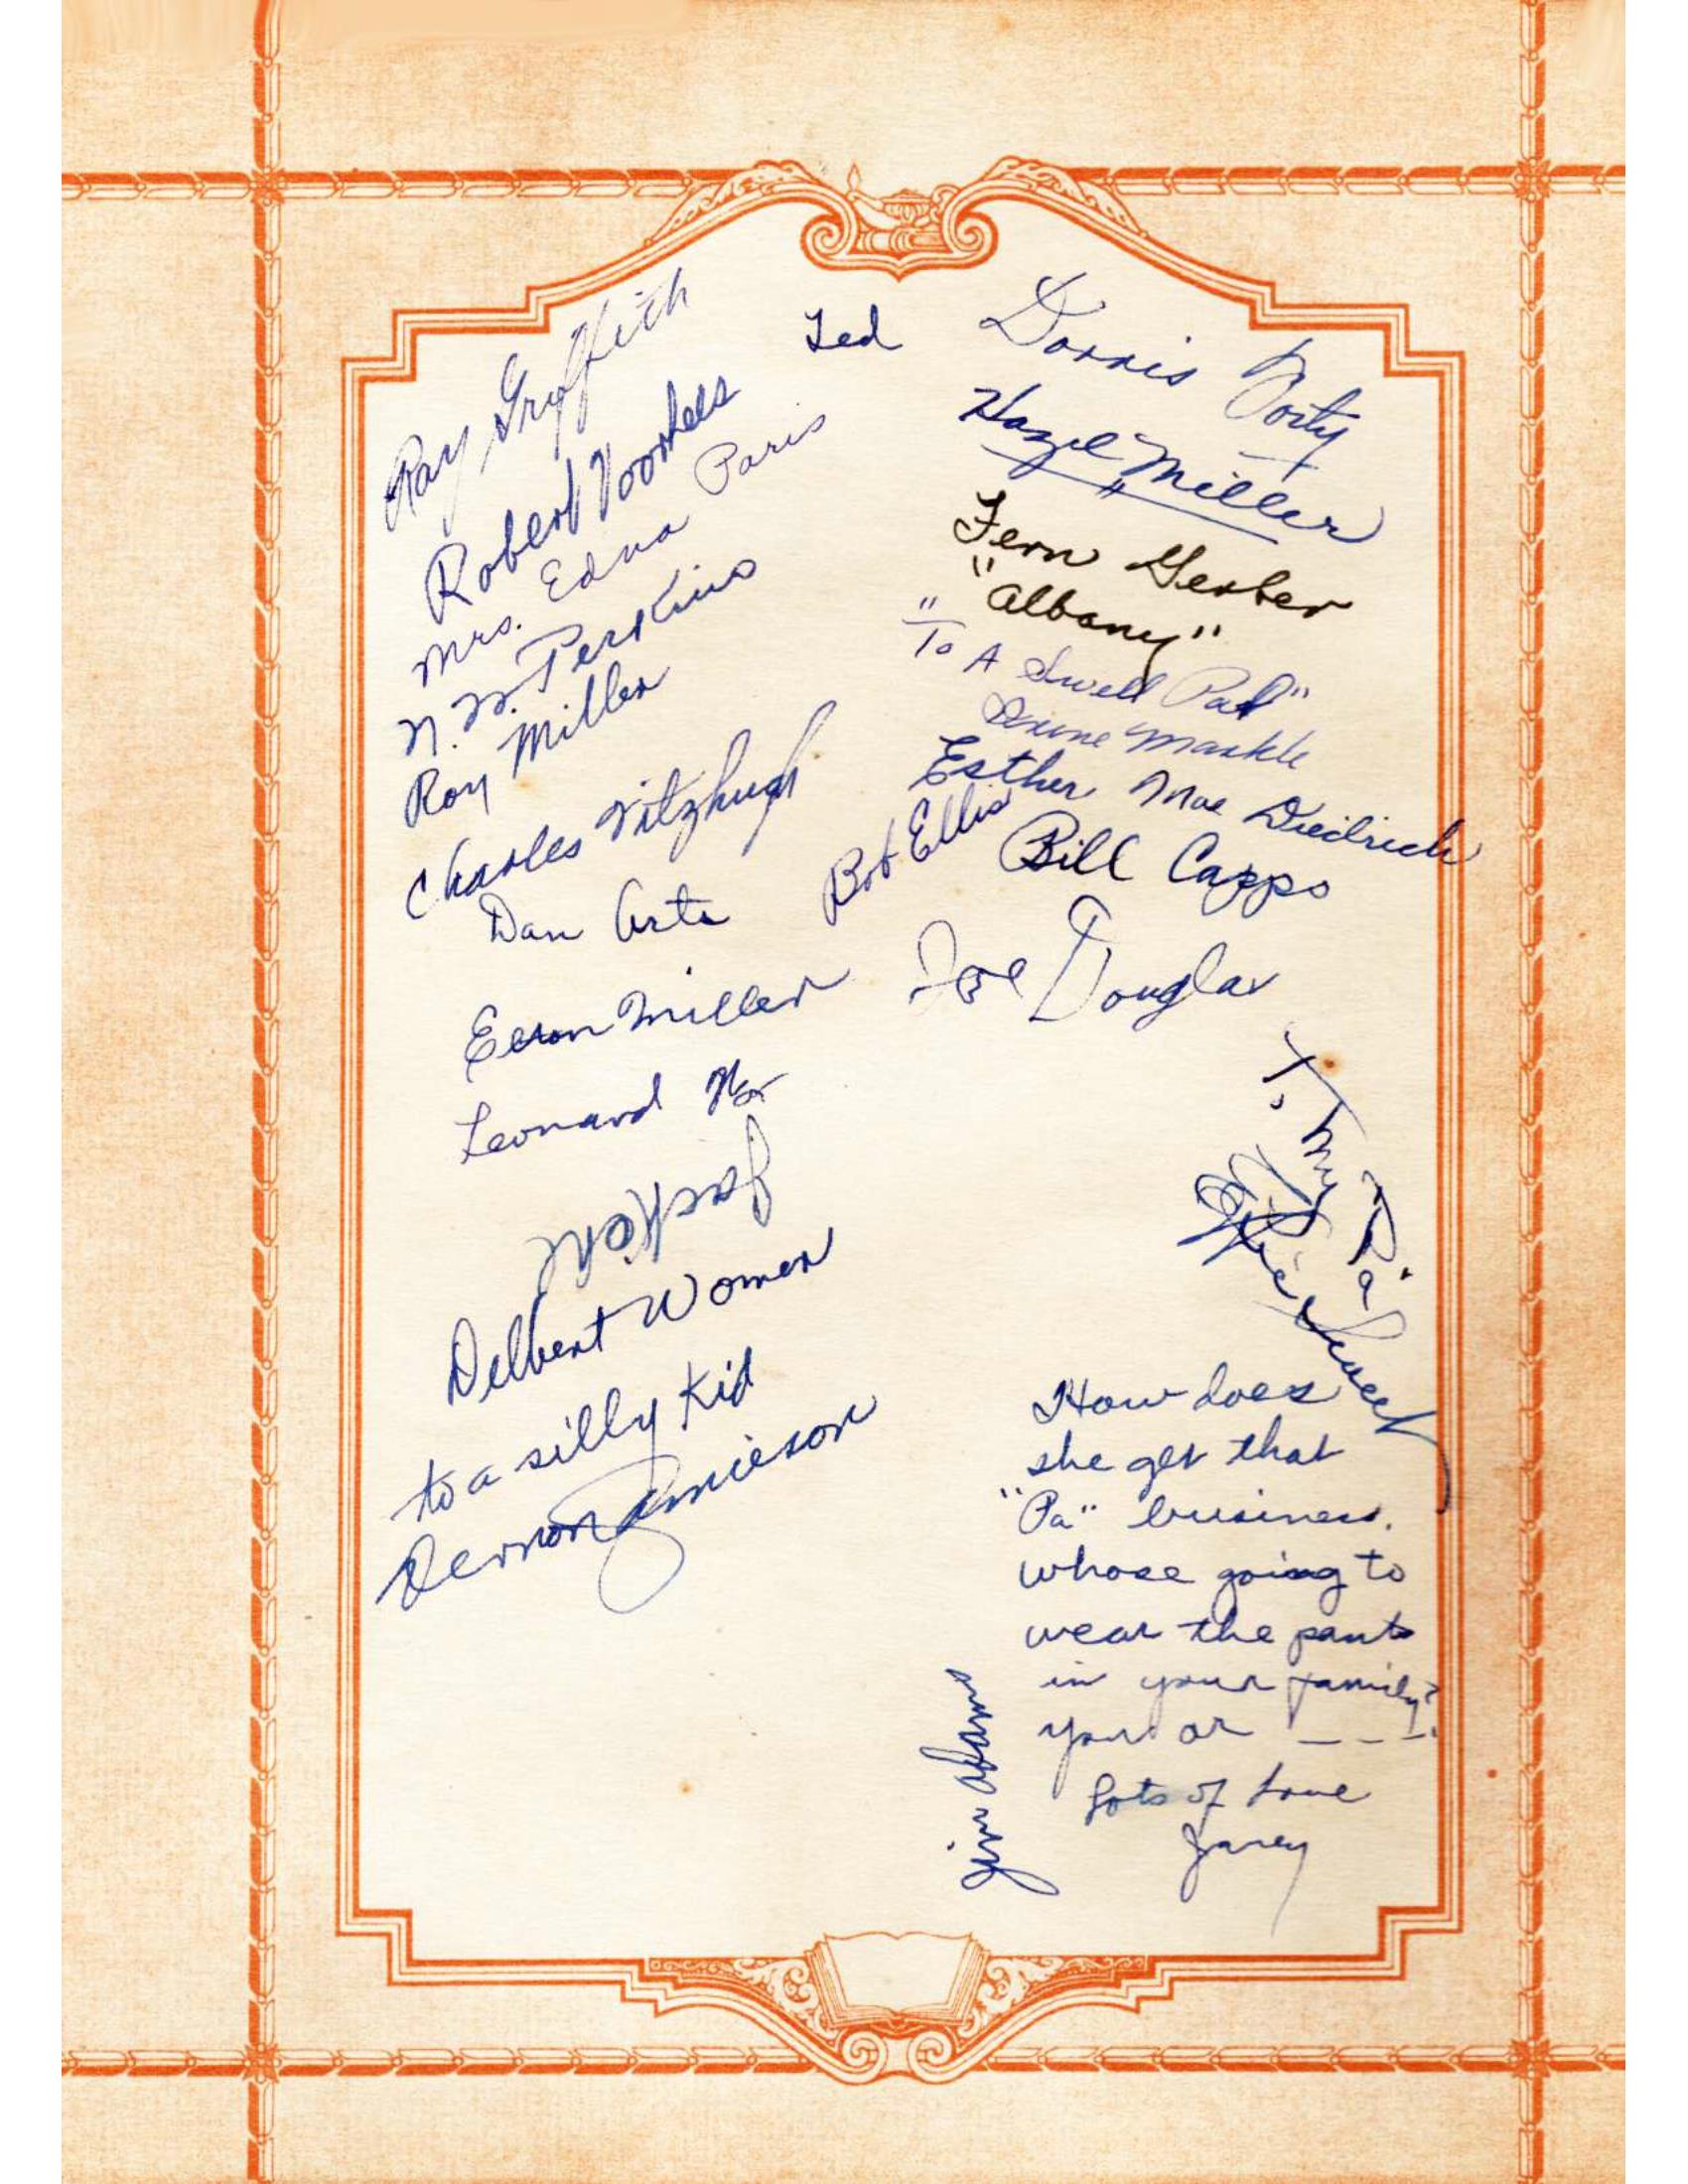 Ray Griffith
Robert Voorhees
Mrs. Edna Paris
N. W. Perkins
Roy Miller
Charles Fitzhugh
Dan Arts
Eeron Miller
Leonard
Jack
Delbert Women
to a silly Kid
Vernon Jamieson
Ted
Dorris Doty
Hazel Miller
Fern Gerber
"Albany"
"To A Swell Pal"
Markle
Esther Mae Diedrich
Bob Ellis
Bill Capps
Joe Douglas
To my "Pa"
Effie
How does
she get that
"Pa" business.
whose going to
wear the pants
in your family?
you or ----.
Lots of Love
Janey
Jim Adams